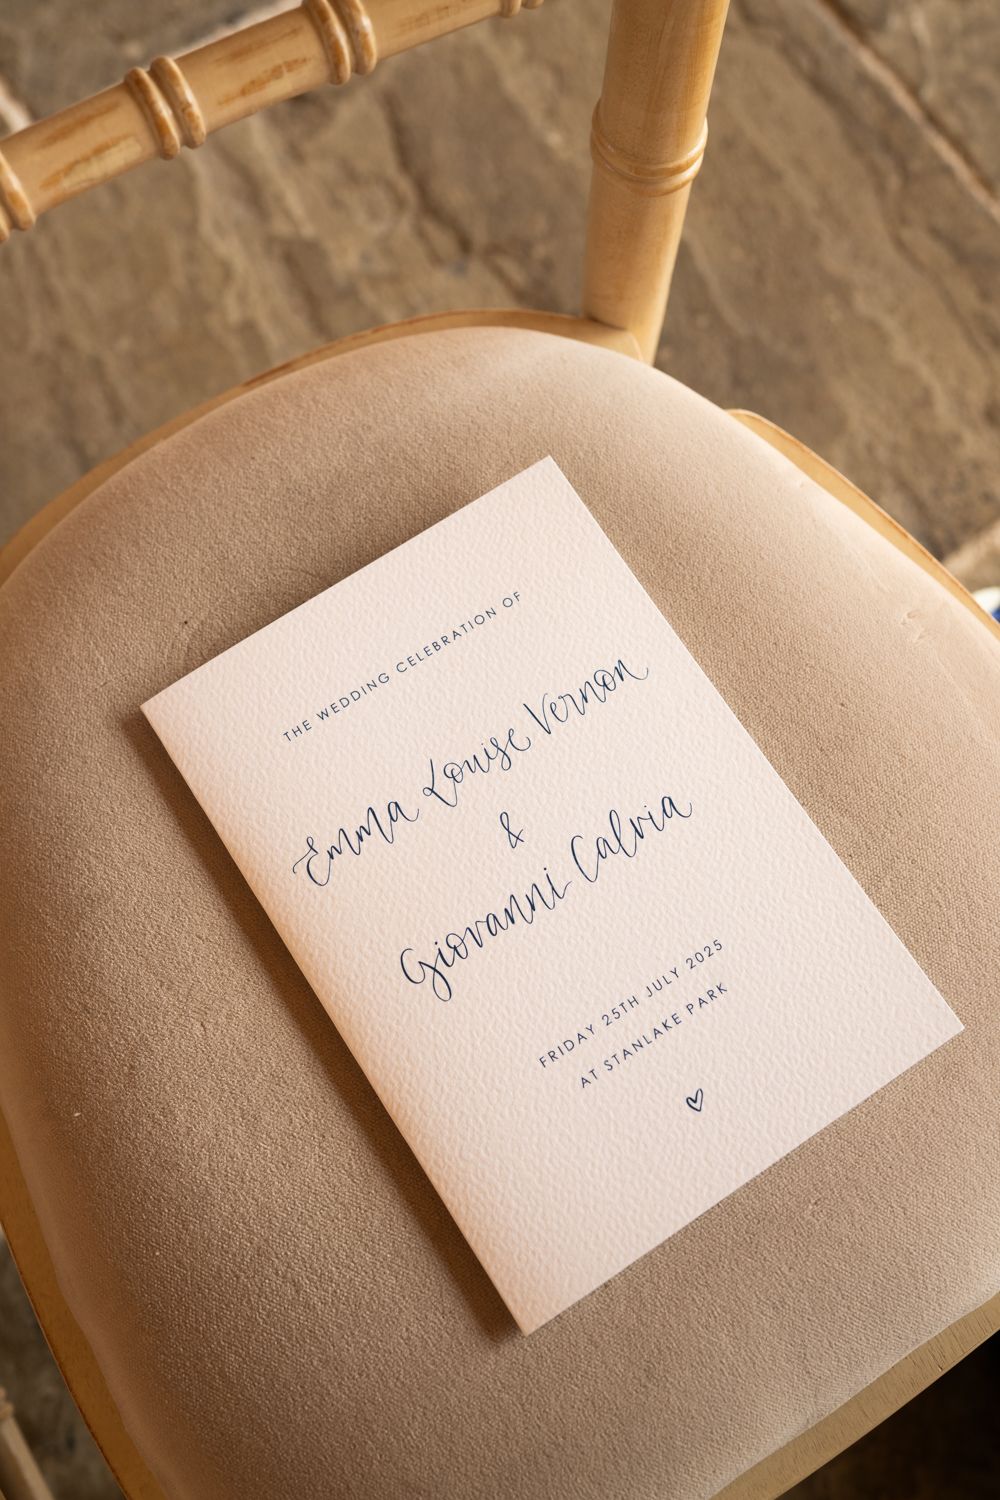 THE WEDDING CELEBRATION OF
Emma Louise Vernon
&
Giovanni Calvia
FRIDAY 25TH JULY 2025
AT STANLAKE PARK